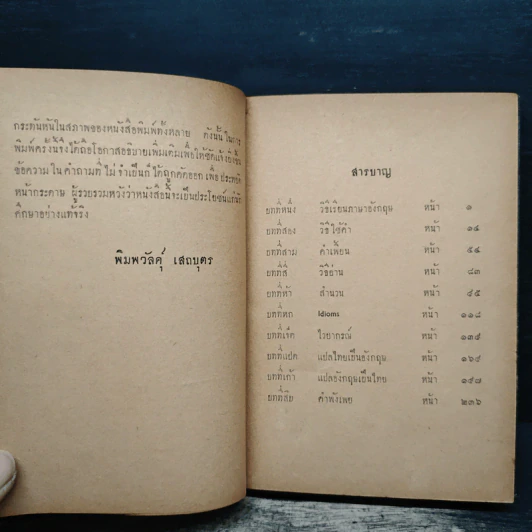 กระทันหันในสภาพของหนังสือพิมพ์ทั้งหลาย ดังนั้น ในการ
พิมพ์ครั้งนี้จึงได้ถือโอกาสอธิบายเพิ่มเติมเพื่อให้ชัดแจ้งยิ่งขึ้น
ข้อความ ใน คำถามที่ ไม่ จำเป็นก็ ได้ถูกตัดออก เพื่อ ประหยัด
หน้ากระดาษ ผู้รวบรวมหวังว่าหนังสือนี้จะเป็นประโยชน์แก่นัก
ศึกษาอย่างแท้จริง
พิมพวัลคุ์ เสถบุตร
สารบาญ
บทที่หนึ่ง วิธีเรียนภาษาอังกฤษ หน้า ๑
บทที่สอง วิธีใช้คำ หน้า ๑๔
บทที่สาม คำเพี้ยน หน้า ๕๔
บทที่สี่ วิธีอ่าน หน้า ๘๓
บทที่ห้า สำนวน หน้า ๙๕
บทที่หก Idioms หน้า ๑๑๘
บทที่เจ็ด ไวยากรณ์ หน้า ๑๓๔
บทที่แปด แปลไทยเป็นอังกฤษ หน้า ๑๖๔
บทที่เก้า แปลอังกฤษเป็นไทย หน้า ๑๙๘
บทที่สิบ คำพังเพย หน้า ๒๓๖